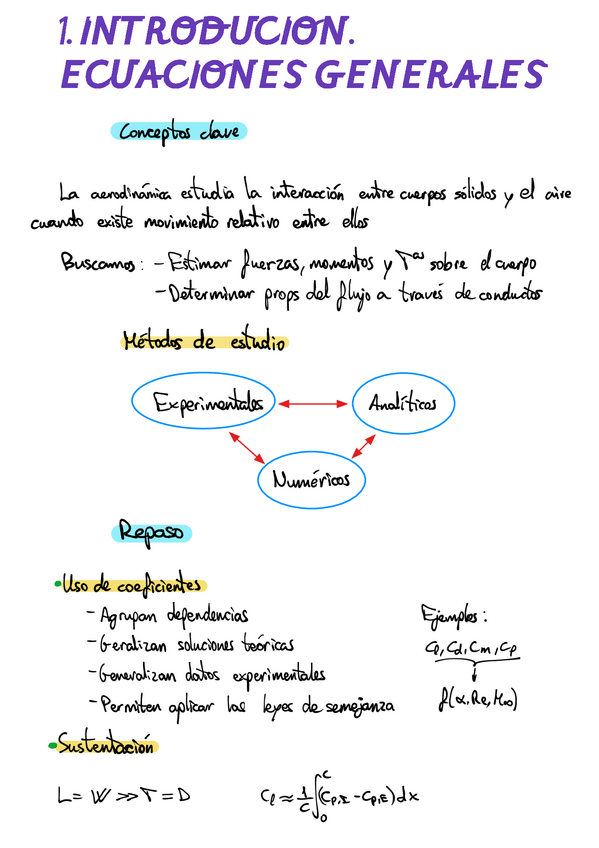 1. INTRODUCION.
ECUACIONES GENERALES
Conceptos clave
La aerodinámica estudia la interacción entre cuerpos sólidos y el aire
cuando existe movimiento relativo entre ellos
Buscamos: - Estimar fuerzas, momentos y Tᵃˢ sobre el cuerpo
- Determinar props del flujo a través de conductos
Métodos de estudio
Experimentales
Analíticos
Numéricos
Repaso
• Uso de coeficientes
- Agrupan dependencias
Ejemplos:
- Geralizan soluciones teóricas
Cl, Cd, Cm, Cp
- Generalizan datos experimentales
- Permiten aplicar las leyes de semejanza
f(α, Re, M∞)
• Sustentación
L = W >> T = D
Cl ≈ 1/c ∫₀ᶜ (Cp,I - Cp,E) dx